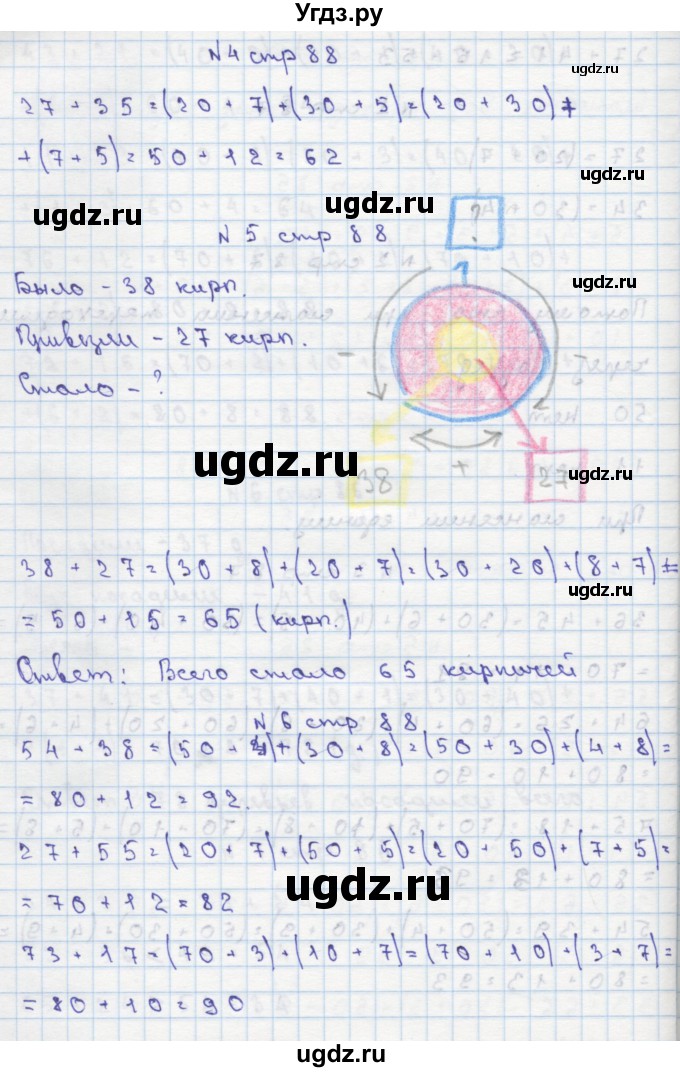 Угдз.ру
N4 стр 88
ugdz.ru
27 + 35 = (20 + 7) + (30 + 5) = (20 + 30) +
ugdz.ru
+ (7 + 5) = 50 + 12 = 62
ugdz.ru
ugdz.ru
?
N 5 стр 88
Было - 38 кирп.
ugdz.ru
1
Привезли - 27 кирп.
-
Стало - ?
ugdz.ru
+
38
27
ugdz.ru
38 + 27 = (30 + 8) + (20 + 7) = (30 + 20) + (8 + 7) =
ugdz.ru
= 50 + 15 = 65 (кирп.)
Ответ: Всего стало 65 кирпичей
N 6 стр 88
54 + 38 = (50 + 4) + (30 + 8) = (50 + 30) + (4 + 8) =
= 80 + 12 = 92.
27 + 55 = (20 + 7) + (50 + 5) = (20 + 50) + (7 + 5) =
ugdz.ru
= 70 + 12 = 82
73 + 17 = (70 + 3) + (10 + 7) = (70 + 10) + (3 + 7) =
= 80 + 10 = 90
ugdz.ru
ugdz.ru